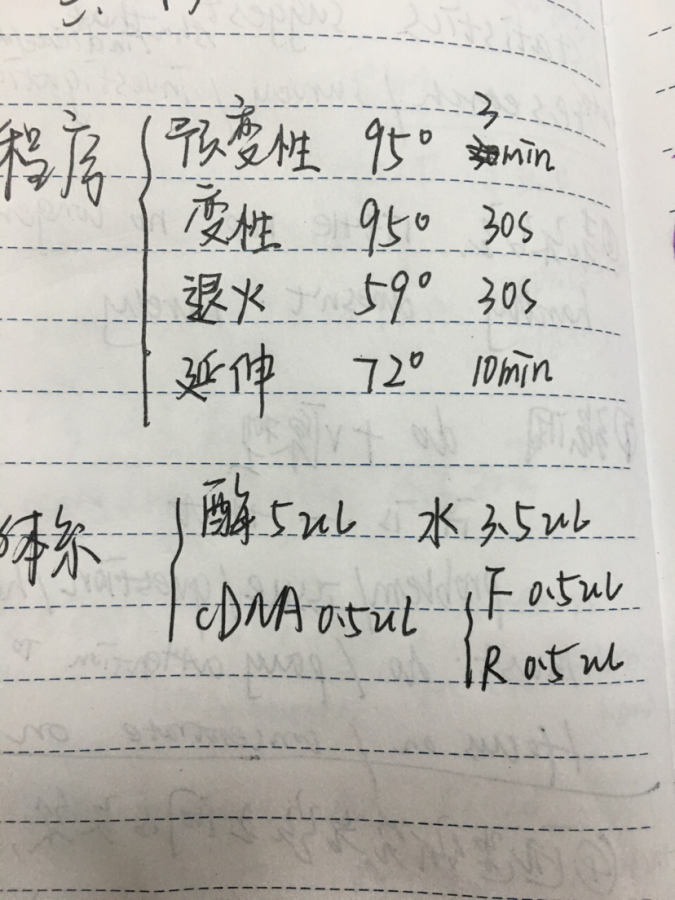 程序
预变性 95° 3min
变性 95° 30s
退火 59° 30s
延伸 72° 10min
体系
酶 5uL 水 3.5uL
cDNA 0.5uL F 0.5uL
R 0.5uL